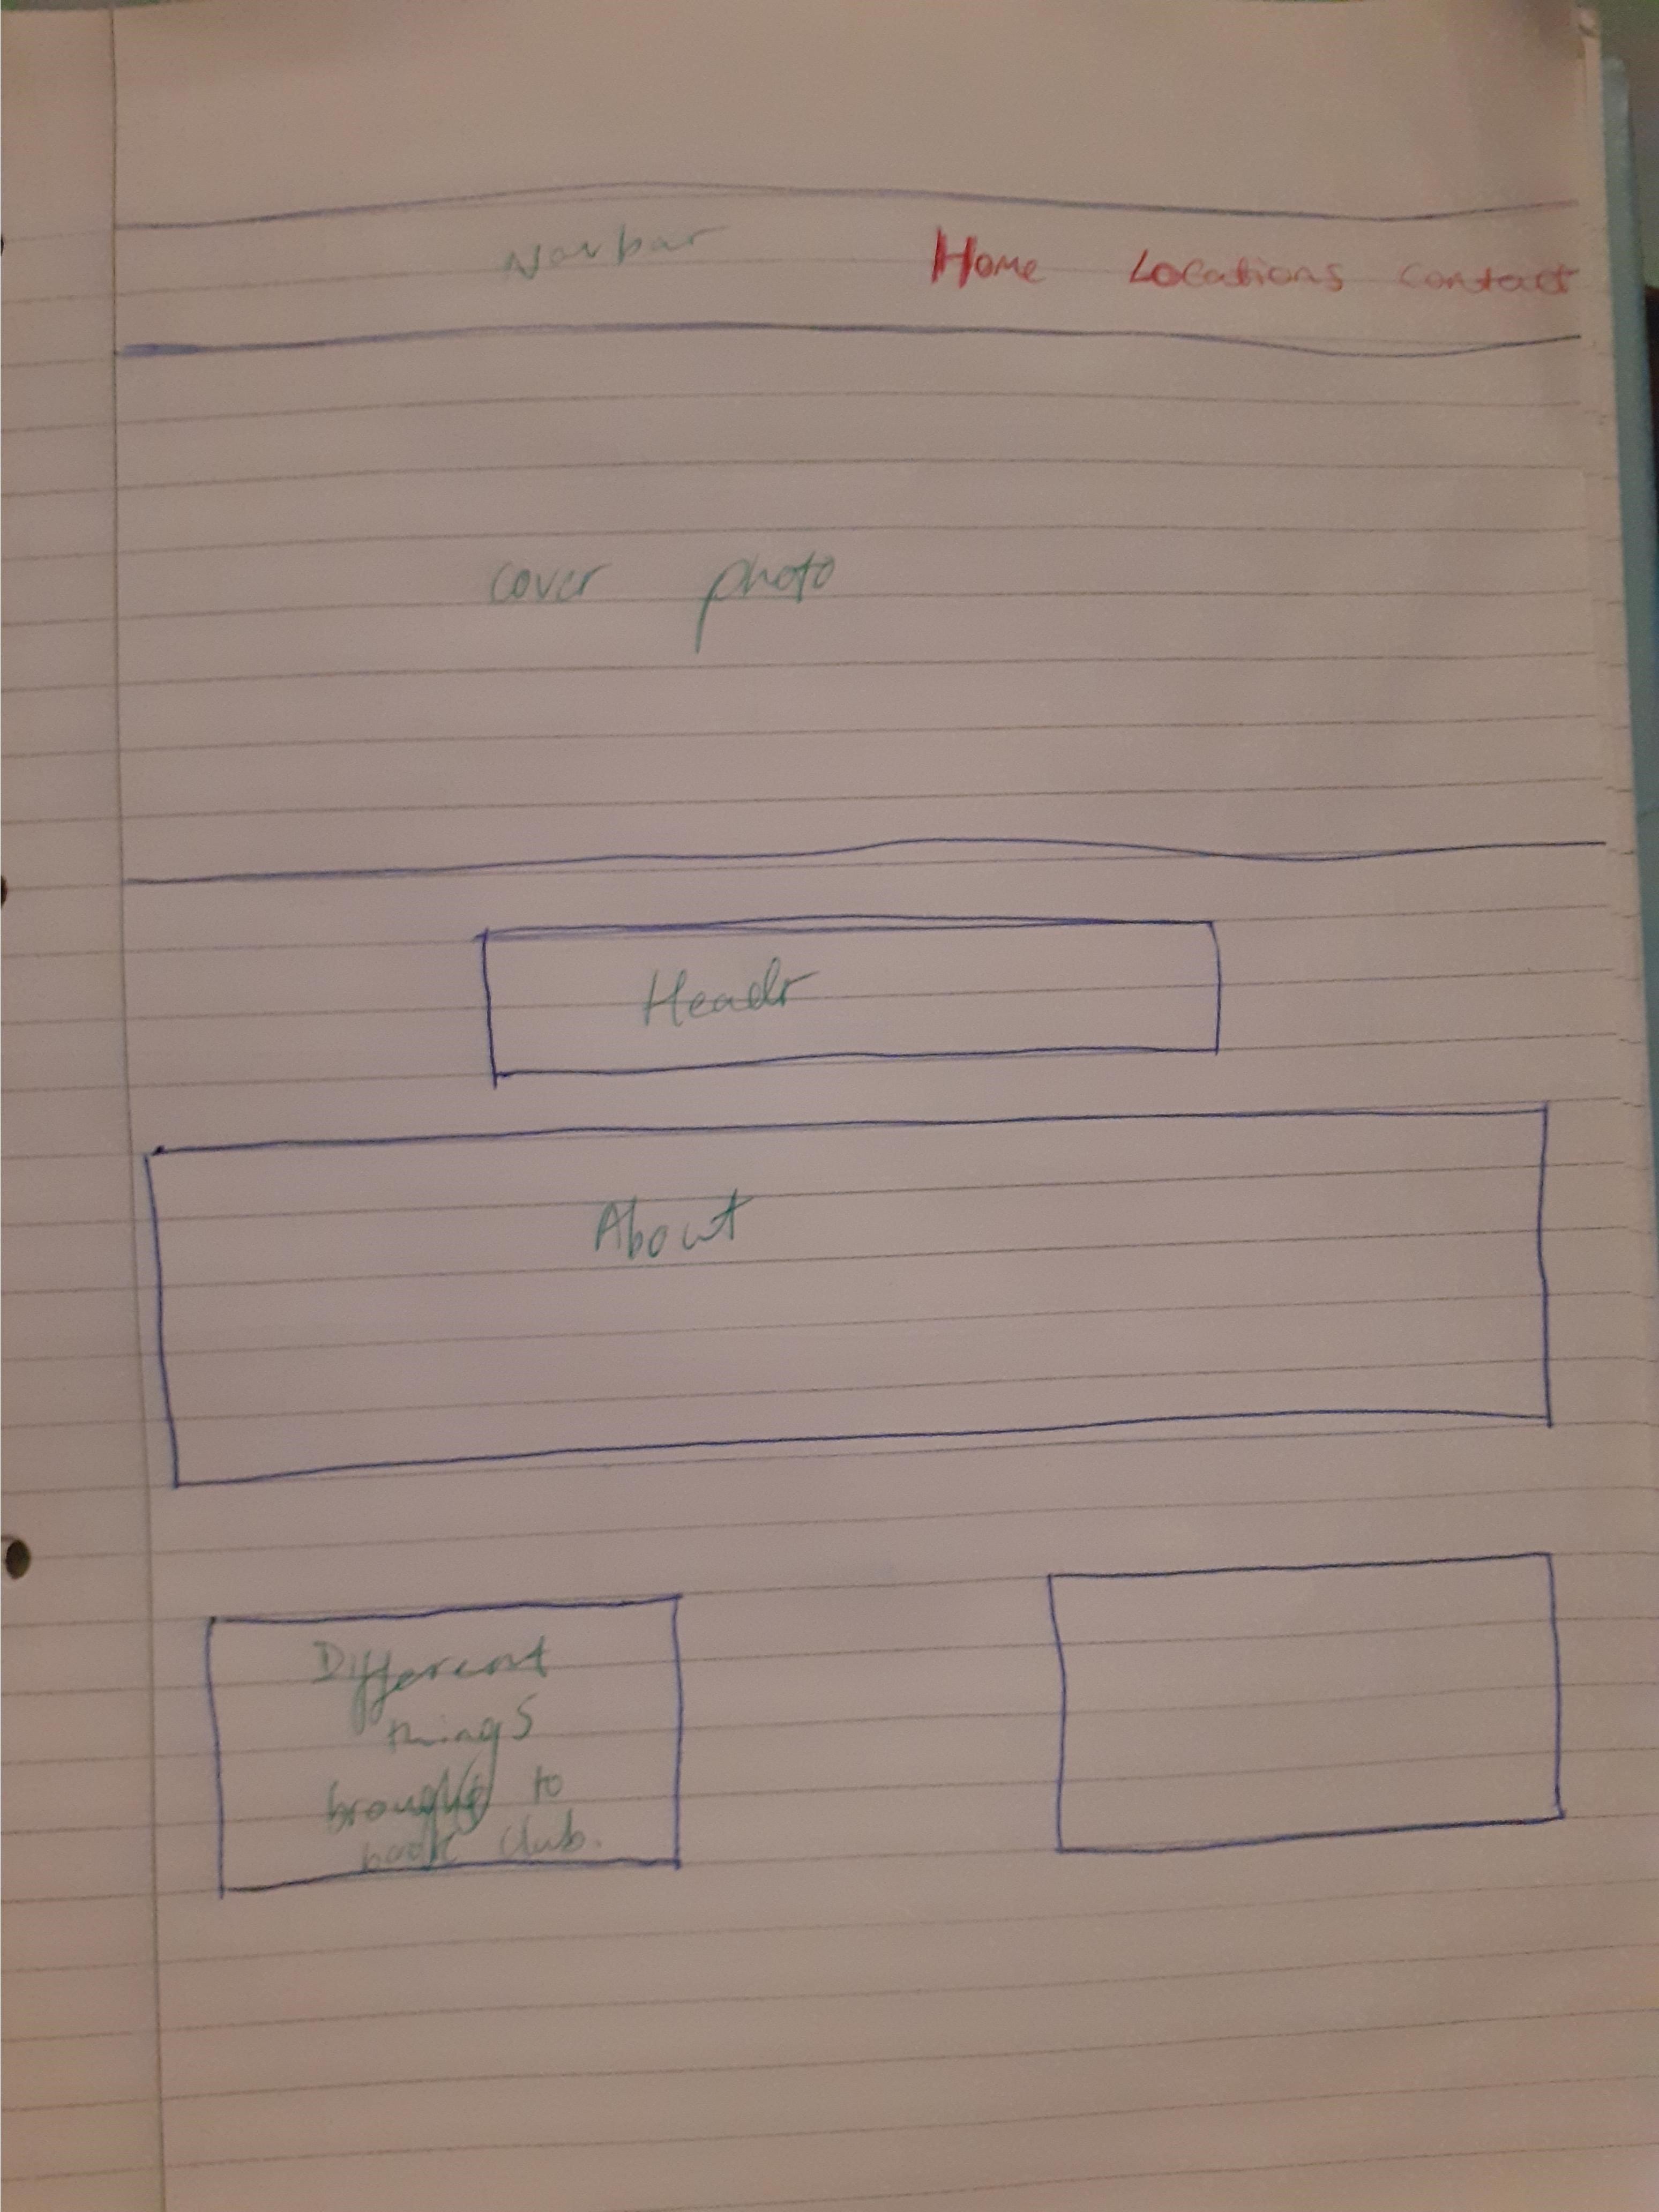 Navbar Home Locations Contact
cover photo
Header
About
Different
things
brought to
book club.